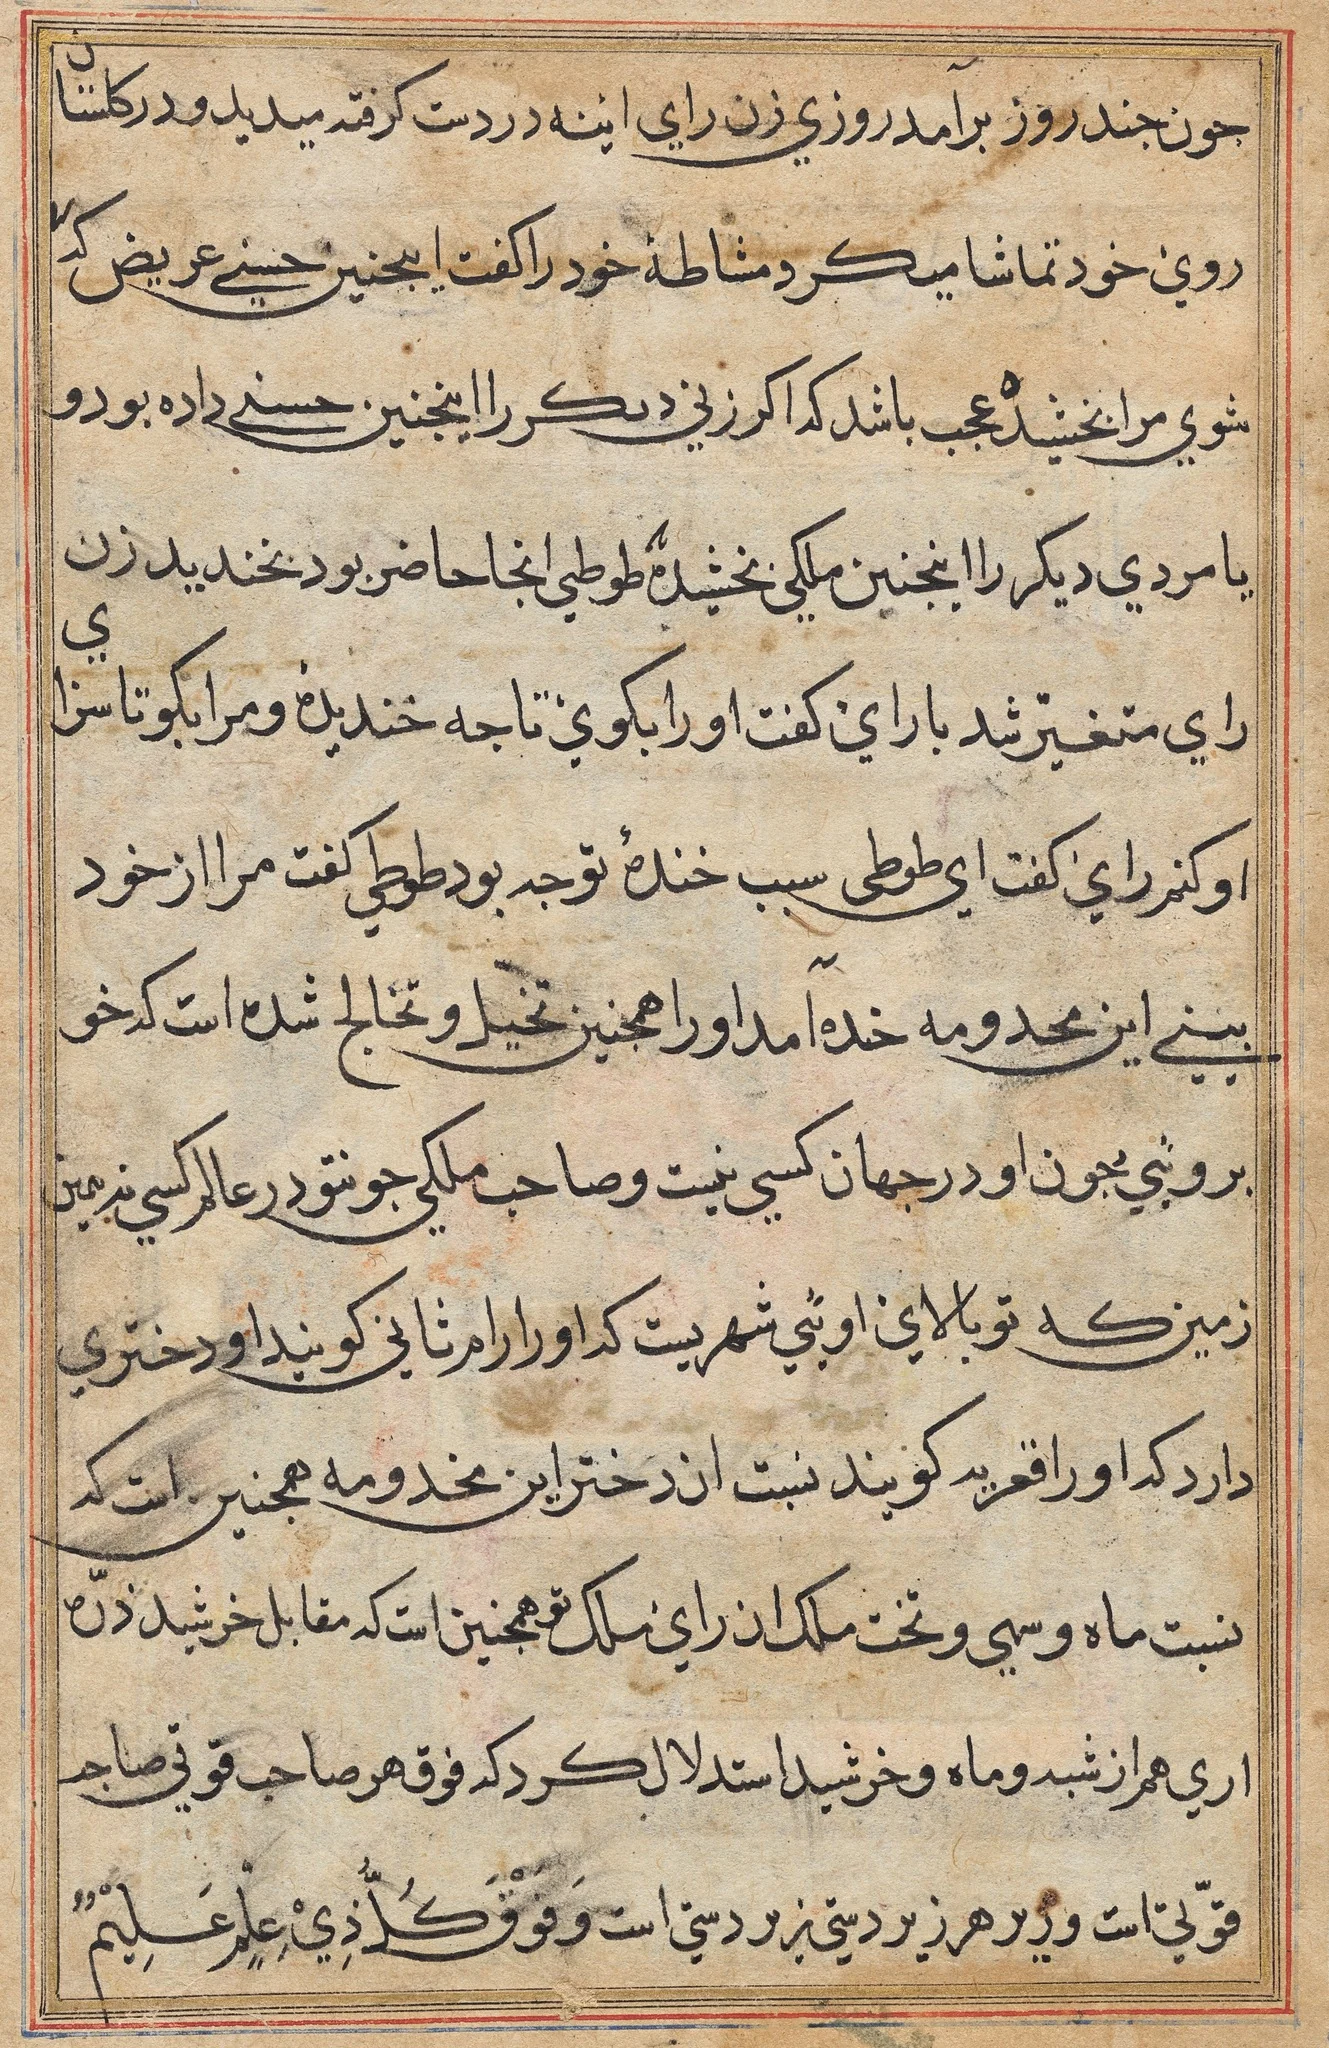 جون جند روز برآمد روزي زن راي اينه در دست كرفته ميديد و در كلستان
روئ خود تماشا ميكرد و مشاطهٔ خود را كفت اينجنين حسنے عريض كه
شوي مرا بخشيده عجب باشد كه اكر زني ديكر را اينجنين حسنے داده بود و
يا مردي ديكر را اينجنين ملكي بخشيدهٔ طوطي انجا حاضر بود بخنديد زن
راي متغيّر شد با راي كفت او را بكوي تا جه خنديدهٔ و مرا بكو تا سزاي
او كنم راي كفت اي طوطى سبب خندهٔ تو جه بود طوطي كفت مرا از خود
بينے اين مخدومه خنده آمد او را همجنين تخيل و تخالج شده است كه خو
بروئي جون او در جهان كسي نيست و صاحب ملكي جو نتو در عالم كسي نه بدين
زمين كه تو بالاي اوئي شهريست كه او را رام ثاني كويند او دختري
دارد كه او را قمريه كويند نسبت ان دختر اين مخدومه همجنين است كه
نسبت ماه و سهي و تخت ملك ان راي ملك تو همجنين است كه مقابل خرشيد ذرّه
اري هم از شبه و ماه و خرشيد استدلال كرد كه فوق هر صاحب قوتي صاحب
قوّتي است و زير هر زبردستي زبردستي است وَفَوْقَ كُلِّ ذِيْ عِلْمٍ عَلِيْمٌ